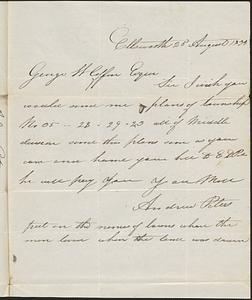 Ellsworth 28 August 183
George W Coffin Esqr
Sir I wish you
would send me plans of township
No 35 - 28 - 29 - 23 all of Middle
devison send this plans soon as you
can and hand your bill to
he will pay you Your Most
Andrew Peters
put on the names of towns when the
when the land was drawn